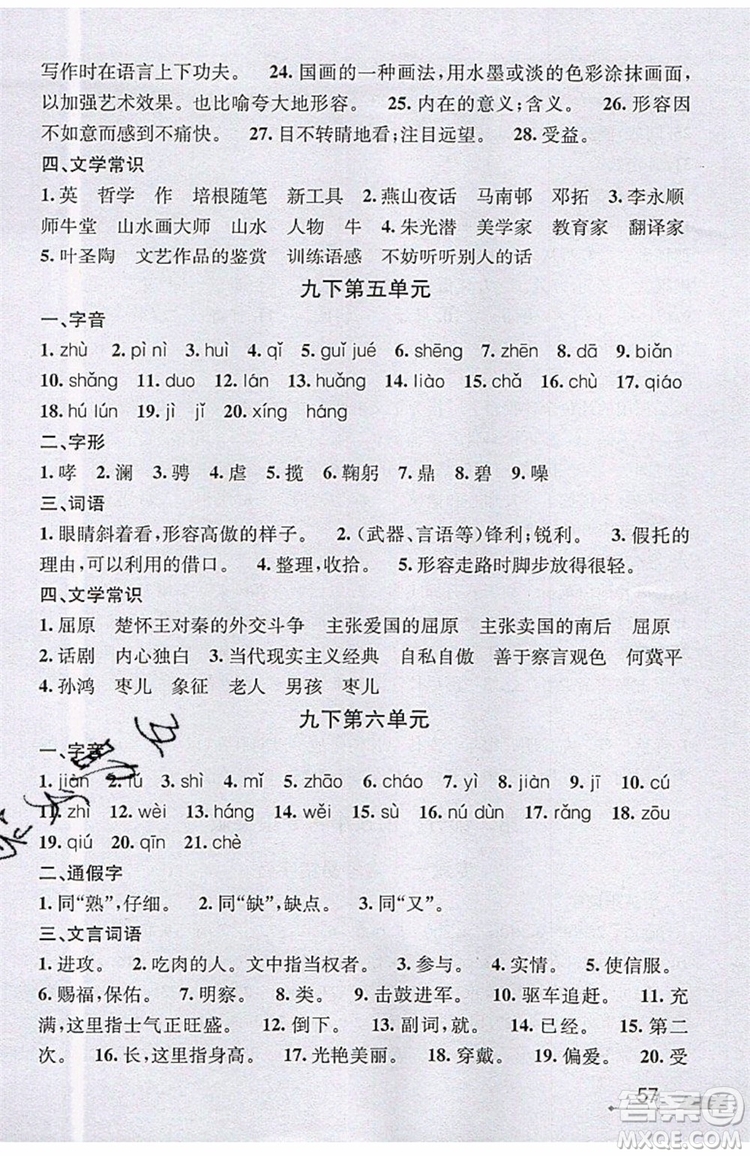 写作时在语言上下功夫。 24. 国画的一种画法，用水墨或淡的色彩涂抹画面，
以加强艺术效果。也比喻夸大地形容。 25. 内在的意义；含义。 26. 形容因
不如意而感到不痛快。 27. 目不转睛地看；注目远望。 28. 受益。
四、文学常识
1. 英 哲学 作 培根随笔 新工具 2. 燕山夜话 马南邨 邓拓 3. 李永顺
师牛堂 山水画大师 山水 人物 牛 4. 朱光潜 美学家 教育家 翻译家
5. 叶圣陶 文艺作品的鉴赏 训练语感 不妨听听别人的话
九下第五单元
一、字音
1. zhù 2. pì nì 3. huì 4. qǐ 5. guǐ jué 6. shēng 7. zhēn 8. dā 9. biǎn
10. shǎng 11. duo 12. lán 13. huǎng 14. liào 15. chǎ 16. chù 17. qiáo
18. hú lún 19. jì jǐ 20. xíng háng
二、字形
1. 哮 2. 澜 3. 骋 4. 虐 5. 揽 6. 鞠躬 7. 鼎 8. 碧 9. 噪
三、词语
1. 眼睛斜着看，形容高傲的样子。 2. （武器、言语等）锋利；锐利。 3. 假托的
理由，可以利用的借口。 4. 整理，收拾。 5. 形容走路时脚步放得很轻。
四、文学常识
1. 屈原 楚怀王对秦的外交斗争 主张爱国的屈原 主张卖国的南后 屈原
2. 话剧 内心独白 3. 当代现实主义经典 自私自傲 善于察言观色 何冀平
4. 孙鸿 枣儿 象征 老人 男孩 枣儿
九下第六单元
一、字音
1. jiàn 2. lú 3. shì 4. mǐ 5. zhāo 6. cháo 7. yǐ 8. jiàn 9. jī 10. cú
11. zhì 12. wèi 13. háng 14. wěi 15. sù 16. nú dùn 17. rǎng 18. zhé
19. qiú 20. qīn 21. chè
二、通假字
1. 同“熟”，仔细。 2. 同“缺”，缺点。 3. 同“又”。
三、文言词语
1. 进攻。 2. 吃肉的人。文中指当权者。 3. 参与。 4. 实情。 5. 使信服。
6. 赐福，保佑。 7. 明察。 8. 类。 9. 击鼓进军。 10. 驱车追赶。 11. 充
满，这里指士气正旺盛。 12. 倒下。 13. 副词，就。 14. 已经。 15. 第二
次。 16. 长，这里指身高。 17. 光艳美丽。 18. 穿戴。 19. 偏爱。 20. 受
57
答案圈
MXQE.COM